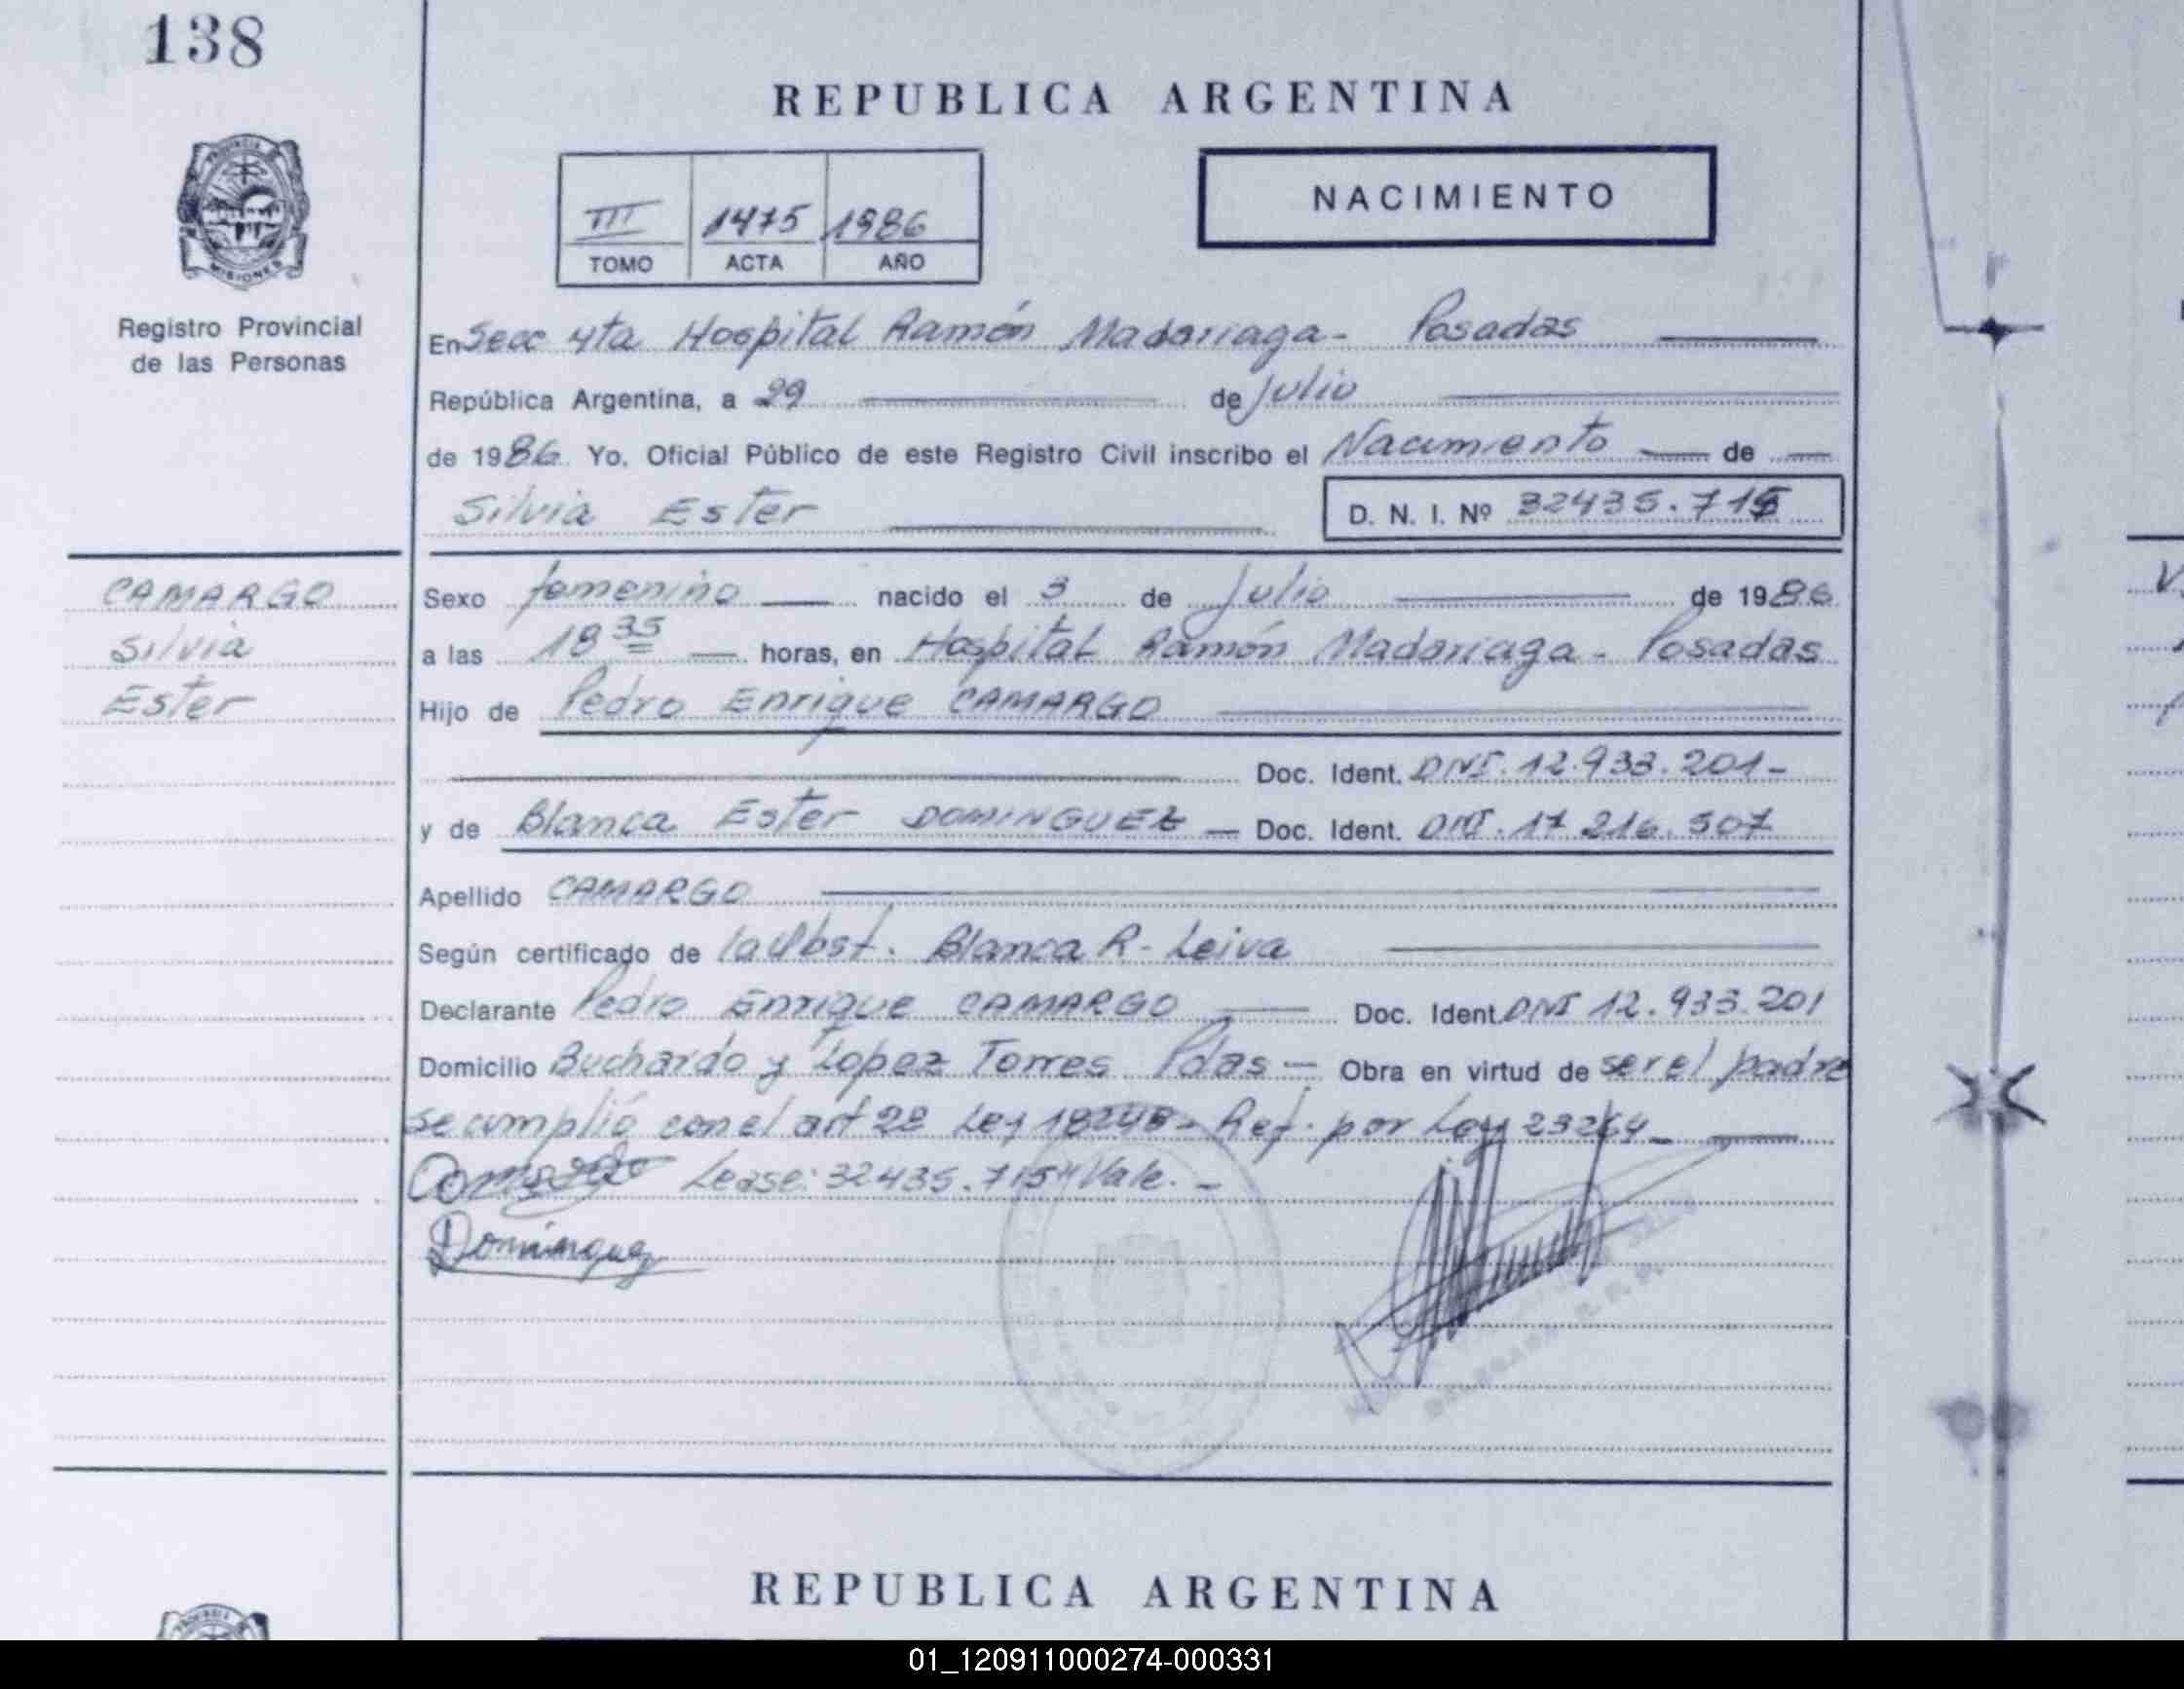 138
REPUBLICA ARGENTINA
PROVINCIA DE
MISIONES
Registro Provincial
de las Personas
III 1475 1986
TOMO ACTA AÑO
NACIMIENTO
En Secc 4ta Hospital Ramón Madariaga - Posadas
República Argentina, a 29 de Julio
de 1986. Yo, Oficial Público de este Registro Civil inscribo el Nacimiento de
Silvia Ester D. N. I. Nº 32435.715
CAMARGO
Silvia
Ester
Sexo femenino nacido el 3 de Julio de 1986
a las 18 35 horas, en Hospital Ramón Madariaga - Posadas
Hijo de Pedro Enrique CAMARGO
Doc. Ident. DNI. 12.933.201-
y de Blanca Ester DOMINGUEZ — Doc. Ident. DNI. 17 216.507
Apellido CAMARGO
Según certificado de la Obst. Blanca R. Leiva
Declarante Pedro Enrique CAMARGO Doc. Ident. DNI 12.933.201
Domicilio Buchardo y Lopez Torres Pdas — Obra en virtud de ser el padre
se cumplió con el art 2º Ley 18248 - Ref. por Ley 23264 -
Camargo Lease: 32435.715 "Vale. -
Dominguez
REPUBLICA ARGENTINA
01_120911000274-000331